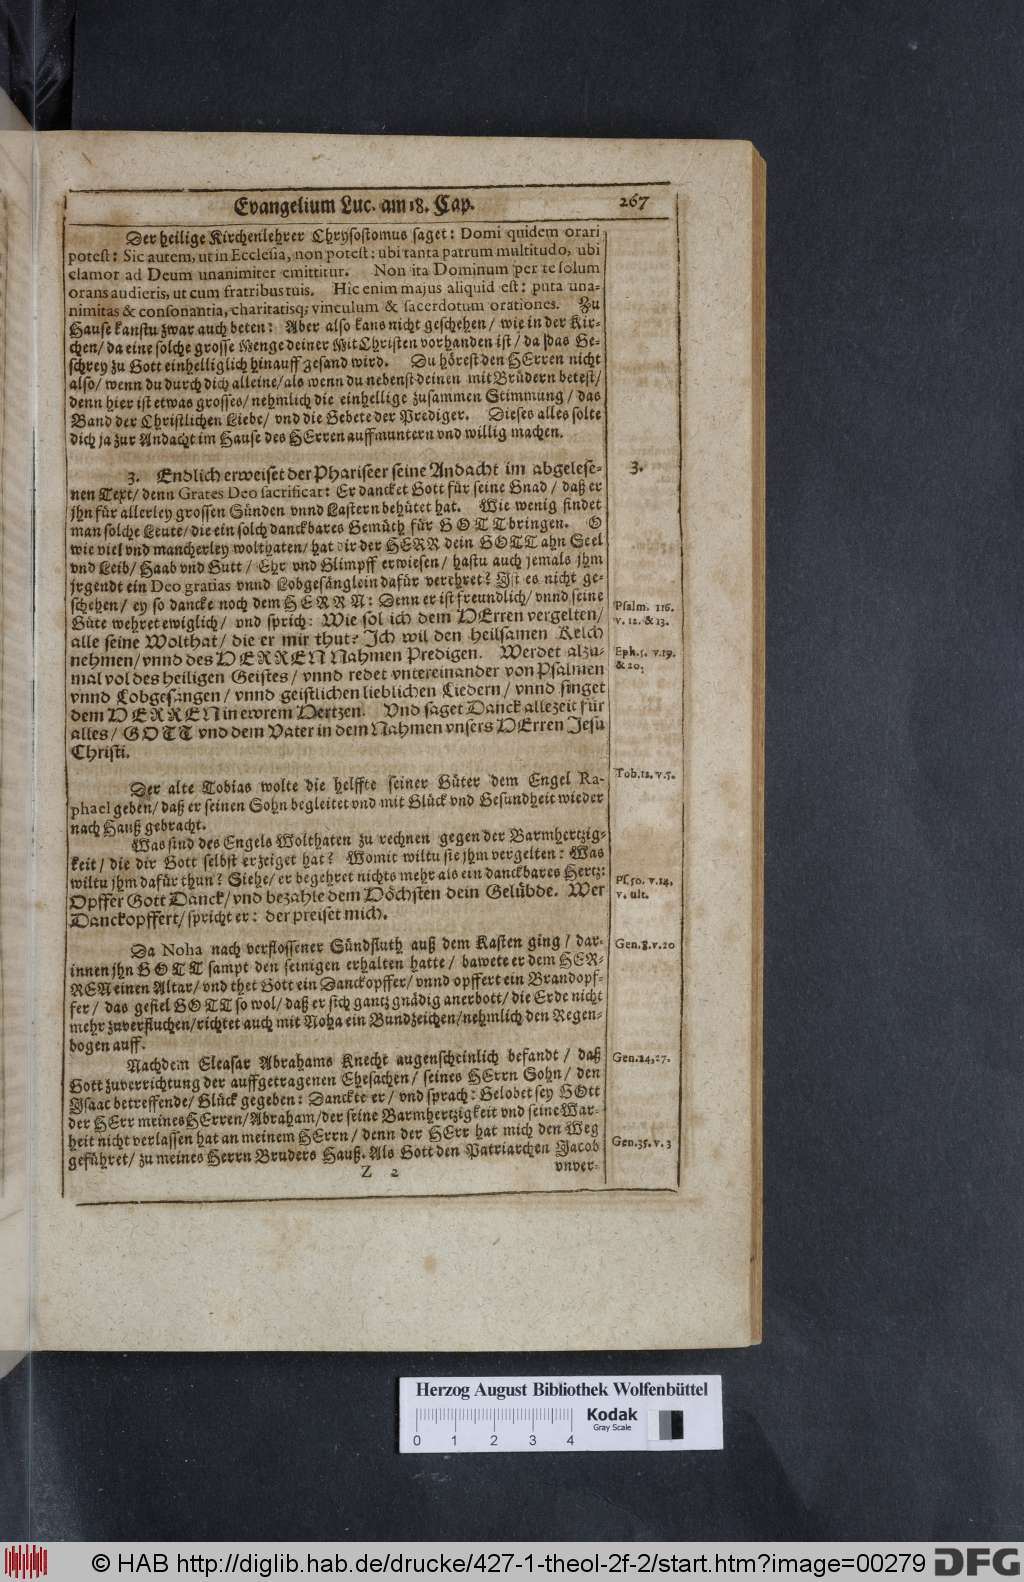 Evangelium Luc. am 18. Cap. 267
Der heilige Kirchenlehrer Chrysostomus saget: Domi quidem orari
potest: Sic autem, ut in Ecclesia, non potest: ubi tanta patrum multitudo, ubi
clamor ad Deum unanimiter emittitur. Non ita Dominum per te solum
orans audieris, ut cum fratribus tuis. Hic enim majus aliquid est: puta una-
nimitas & consonantia, charitatisq; vinculum & sacerdotum orationes. Zu
Hause kanstu zwar auch beten: Aber also kans nicht geschehen/ wie in der Kir-
chen/ da eine solche grosse Menge deiner Mit Christen vorhanden ist/ da das Ge-
schrey zu Gott einhelliglich hinauff gesand wird. Du hörest den HErren nicht
also/ wenn du durch dich alleine/ als wenn du nebenst deinen mit Brüdern betest/
denn hier ist etwas grosses/ nehmlich die einhellige zusammen Stimmung/ das
Band der Christlichen Liebe/ vnd die Gebete der Prediger. Dieses alles solte
dich ja zur Andacht im Hause des HErren auffmuntern vnd willig machen.
3. Endlich erweiset der Phariseer seine Andacht im abgelese- 3.
nen Text/ denn Grates Deo sacrificat: Er dancket Gott für seine Gnad/ daß er
jhn für allerley grossen Sünden vnnd Lastern behütet hat. Wie wenig findet
man solche Leute/ die ein solch danckbares Gemüth für GOTT bringen. O
wie viel vnd mancherley wolthaten/ hat dir der HERR dein GOTT ahn Seel
vnd Leib/ Haab vnd Gutt/ Ehr vnd Glimpff erwiesen/ hastu auch jemals jhm
jrgendt ein Deo gratias vnnd Lobgesänglein dafür verehret? Ist es nicht ge-
schehen/ ey so dancke noch dem HERRN: Denn er ist freundlich/ vnnd seine
Güte wehret ewiglich/ vnd sprich: Wie sol ich dem HErren vergelten/
alle seine Wolthat/ die er mir thut? Ich wil den heilsamen Kelch
nehmen/ vnnd des HERREN Nahmen Predigen. Werdet alzu-
mal vol des heiligen Geistes/ vnnd redet vntereinander von Psalmen
vnnd Lobgesängen/ vnnd geistlichen lieblichen Liedern/ vnnd singet
dem HERREN in ewrem Hertzen. Vnd saget Danck allezeit für
alles/ GOTT vnd dem Vater in dem Nahmen vnsers HErren Jesu
Christi.
Psalm. 116.
v. 12. & 13.
Eph. 5. v. 19.
& 20.
Der alte Tobias wolte die helffte seiner Güter dem Engel Ra-
phael geben/ daß er seinen Sohn begleitet vnd mit Glück vnd Gesundheit wieder
nach Hauß gebracht.
Tob. 12. v. 5.
Was sind des Engels Wolthaten zu rechnen gegen der Barmhertzig-
keit/ die dir Gott selbst erzeiget hat? Womit wiltu sie jhm vergelten: Was
wiltu jhm dafür thun? Siehe/ er begehret nichts mehr als ein danckbares Hertz:
Opffer Gott Danck/ vnd bezahle dem Höchsten dein Gelübde. Wer
Danckopffert/ spricht er: der preiset mich.
Ps. 50. v. 14.
v. ult.
Da Noha nach verflossener Sündfluth auß dem Kasten ging/ dar-
innen jhn GOTT sampt den seinigen erhalten hatte/ bawete er dem HER-
REN einen Altar/ vnd thet Gott ein Danckopffer/ vnnd opffert ein Brandopf-
fer/ das gefiel GOTT so wol/ daß er sich gantz gnädig anerbott/ die Erde nicht
mehr zuverfluchen/ richtet auch mit Noha ein Bundzeichen/ nehmlich den Regen-
bogen auff.
Gen. 8. v. 20
Nachdem Eleasar Abrahams Knecht augenscheinlich befandt/ daß
Gott zuverrichtung der auffgetragenen Ehesachen/ seines HErrn Sohn/ den
Isaac betreffende/ Glück gegeben: Danckte er/ vnd sprach: Gelobet sey GOtt
der HErr meines HErren/ Abraham/ der seine Barmhertzigkeit vnd seine War-
heit nicht verlassen hat an meinem HErrn/ denn der HErr hat mich den Weg
geführet/ zu meines Herrn Bruders Hauß. Als Gott den Patriarchen Jacob
Gen. 24, 27.
Gen. 35. v. 3
Z 2 vnver-
Herzog August Bibliothek Wolfenbüttel
Kodak
Gray Scale
0 1 2 3 4
© HAB http://diglib.hab.de/drucke/427-1-theol-2f-2/start.htm?image=00279 DFG